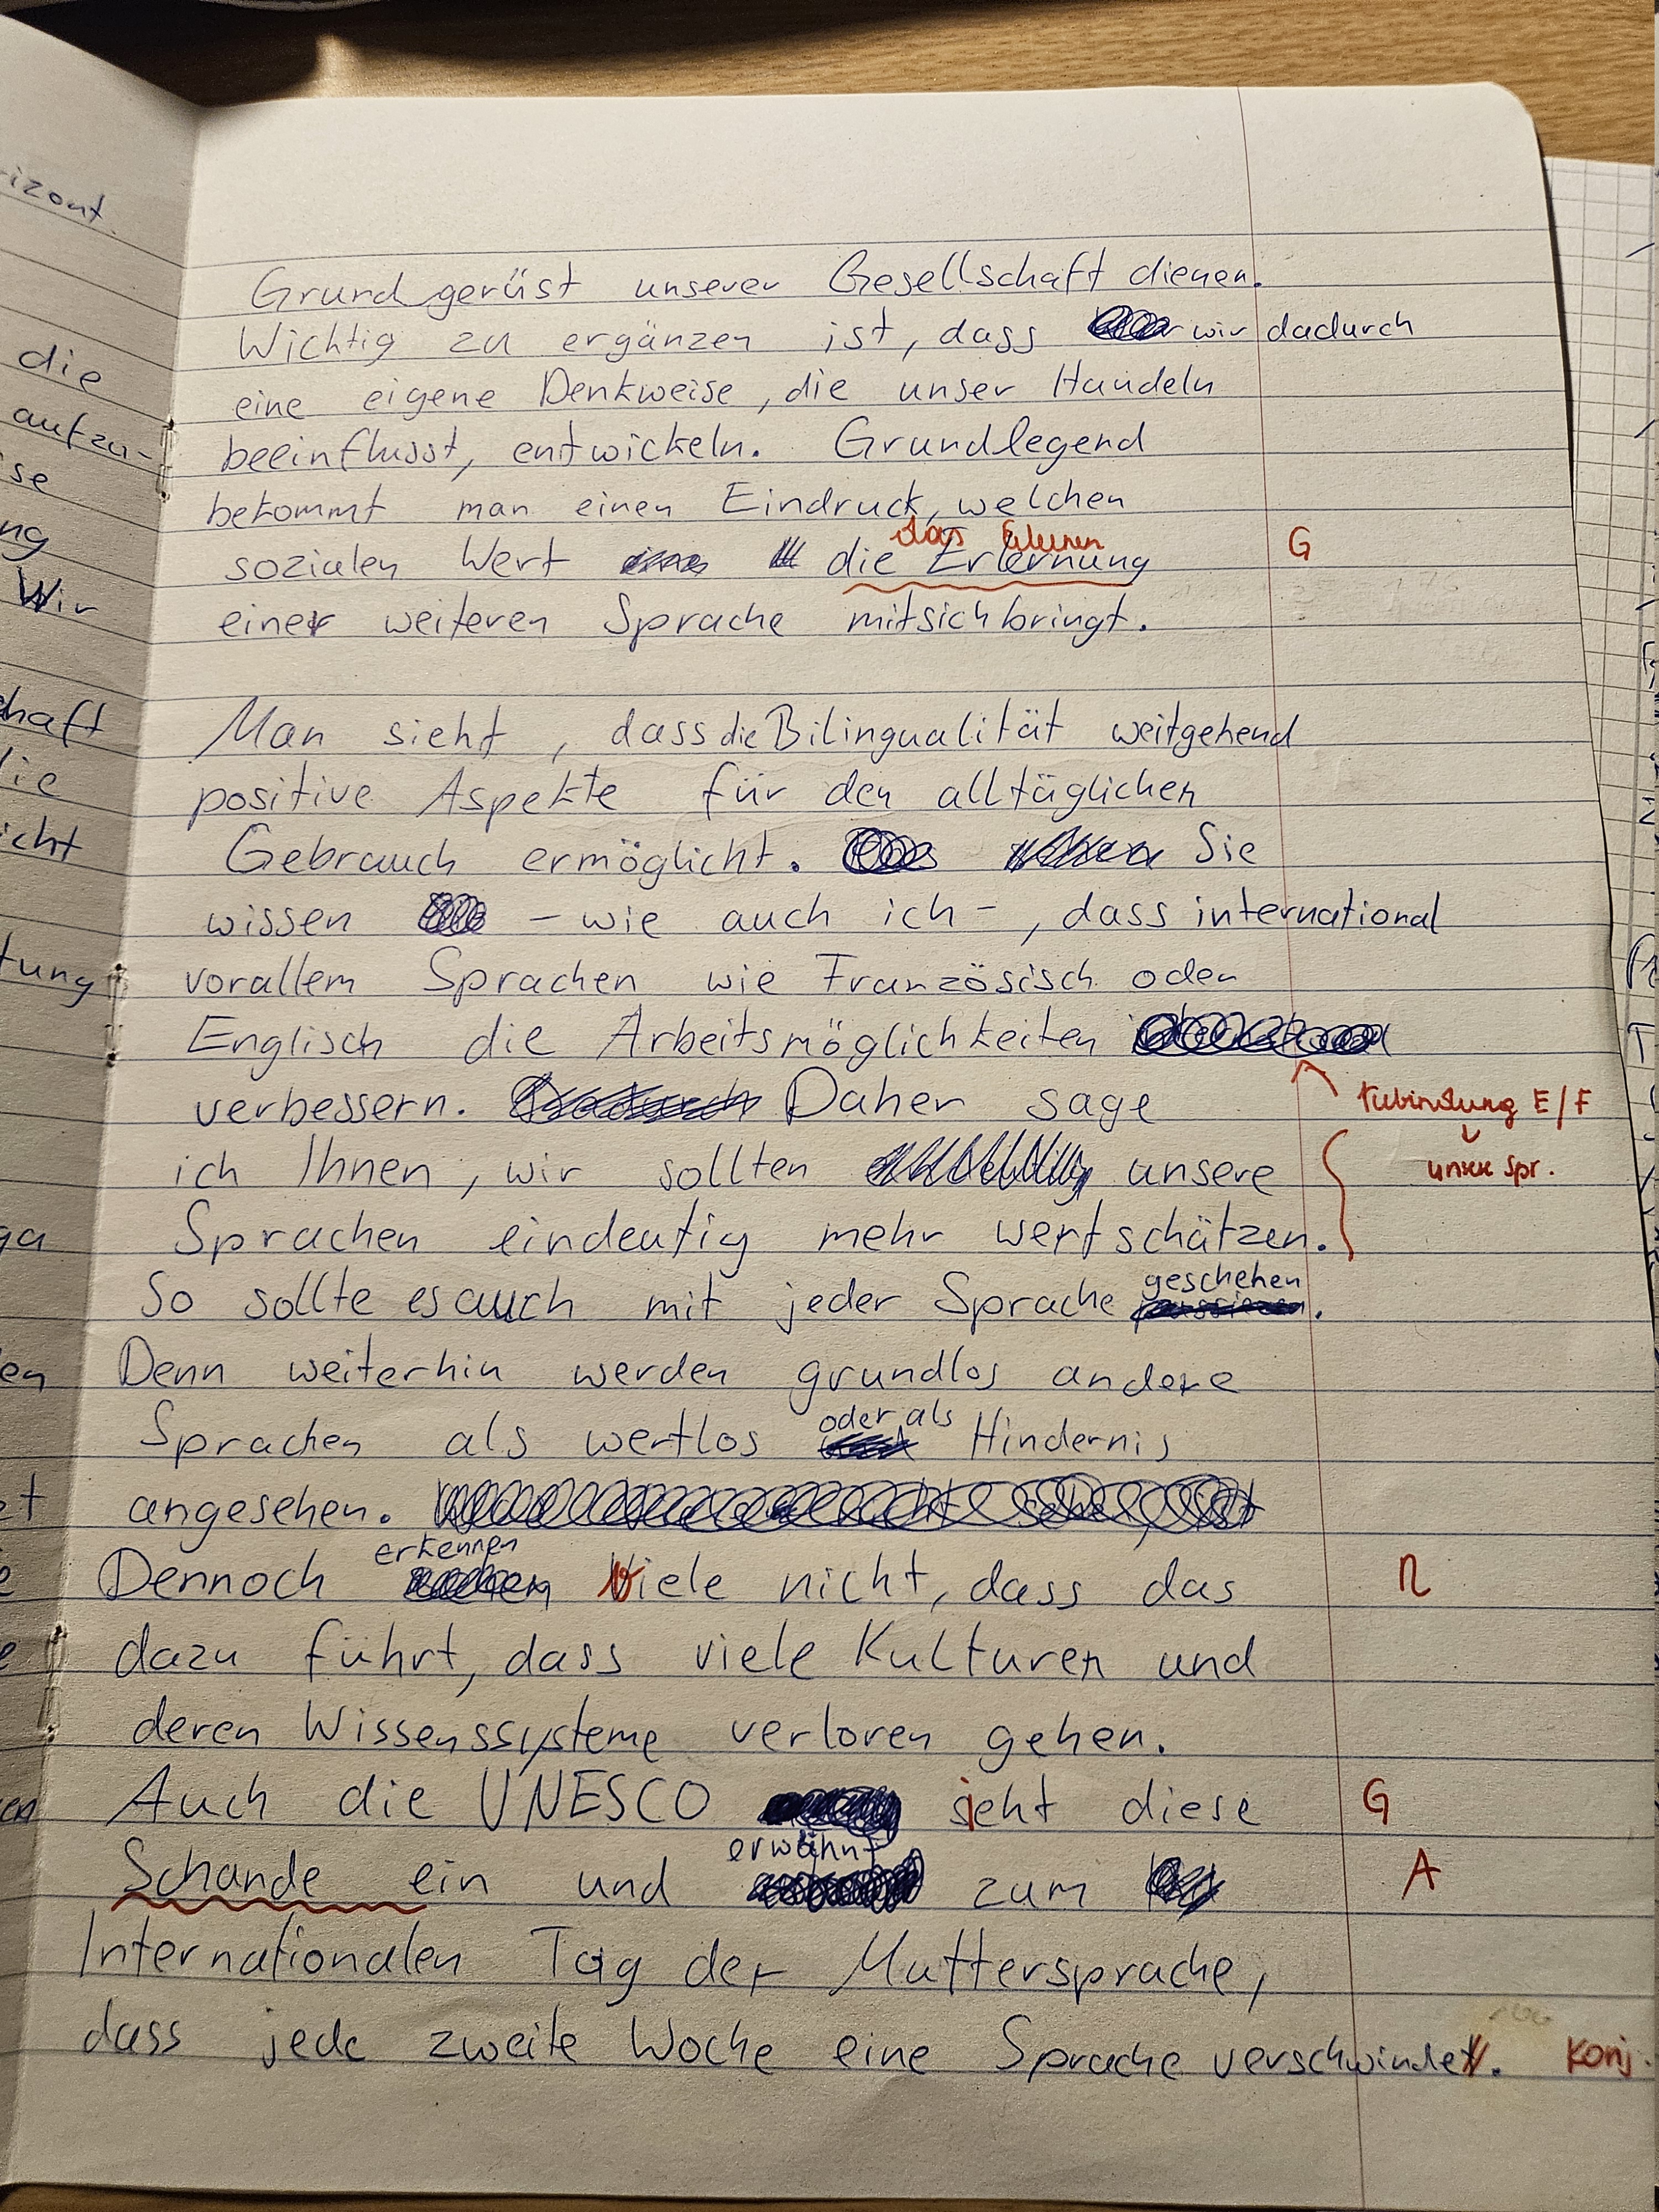 Grundgerüst unserer Gesellschaft dienen.
Wichtig zu ergänzen ist, dass wir dadurch
eine eigene Denkweise, die unser Handeln
beeinflusst, entwickeln. Grundlegend
bekommt man einen Eindruck, welchen
das Erlernen
sozialen Wert die Erlernung G
einer weiteren Sprache mitsichbringt.
Man sieht, dass die Bilingualität weitgehend
positive Aspekte für den alltäglichen
Gebrauch ermöglicht. Sie
wissen – wie auch ich –, dass international
vorallem Sprachen wie Französisch oder
Englisch die Arbeitsmöglichkeiten
verbessern. Daher sage E/F
ich Ihnen, wir sollten unsere Spr.
Sprachen eindeutig mehr wertschätzen.
geschehen
So sollte es auch mit jeder Sprache .
Denn weiterhin werden grundlos andere
oder als
Sprachen als wertlos Hindernis
angesehen.
erkennen
Dennoch viele nicht, dass das R
dazu führt, dass viele Kulturen und
deren Wissenssysteme verloren gehen.
Auch die UNESCO sieht diese G
erwähnt
Schande ein und zum A
Internationalen Tag der Muttersprache,
dass jede zweite Woche eine Sprache verschwindet. Konj.
izont.
die
aufzu-
se
ng
Wir
haft
lie
icht
tung
ga
en
et
e
e
en